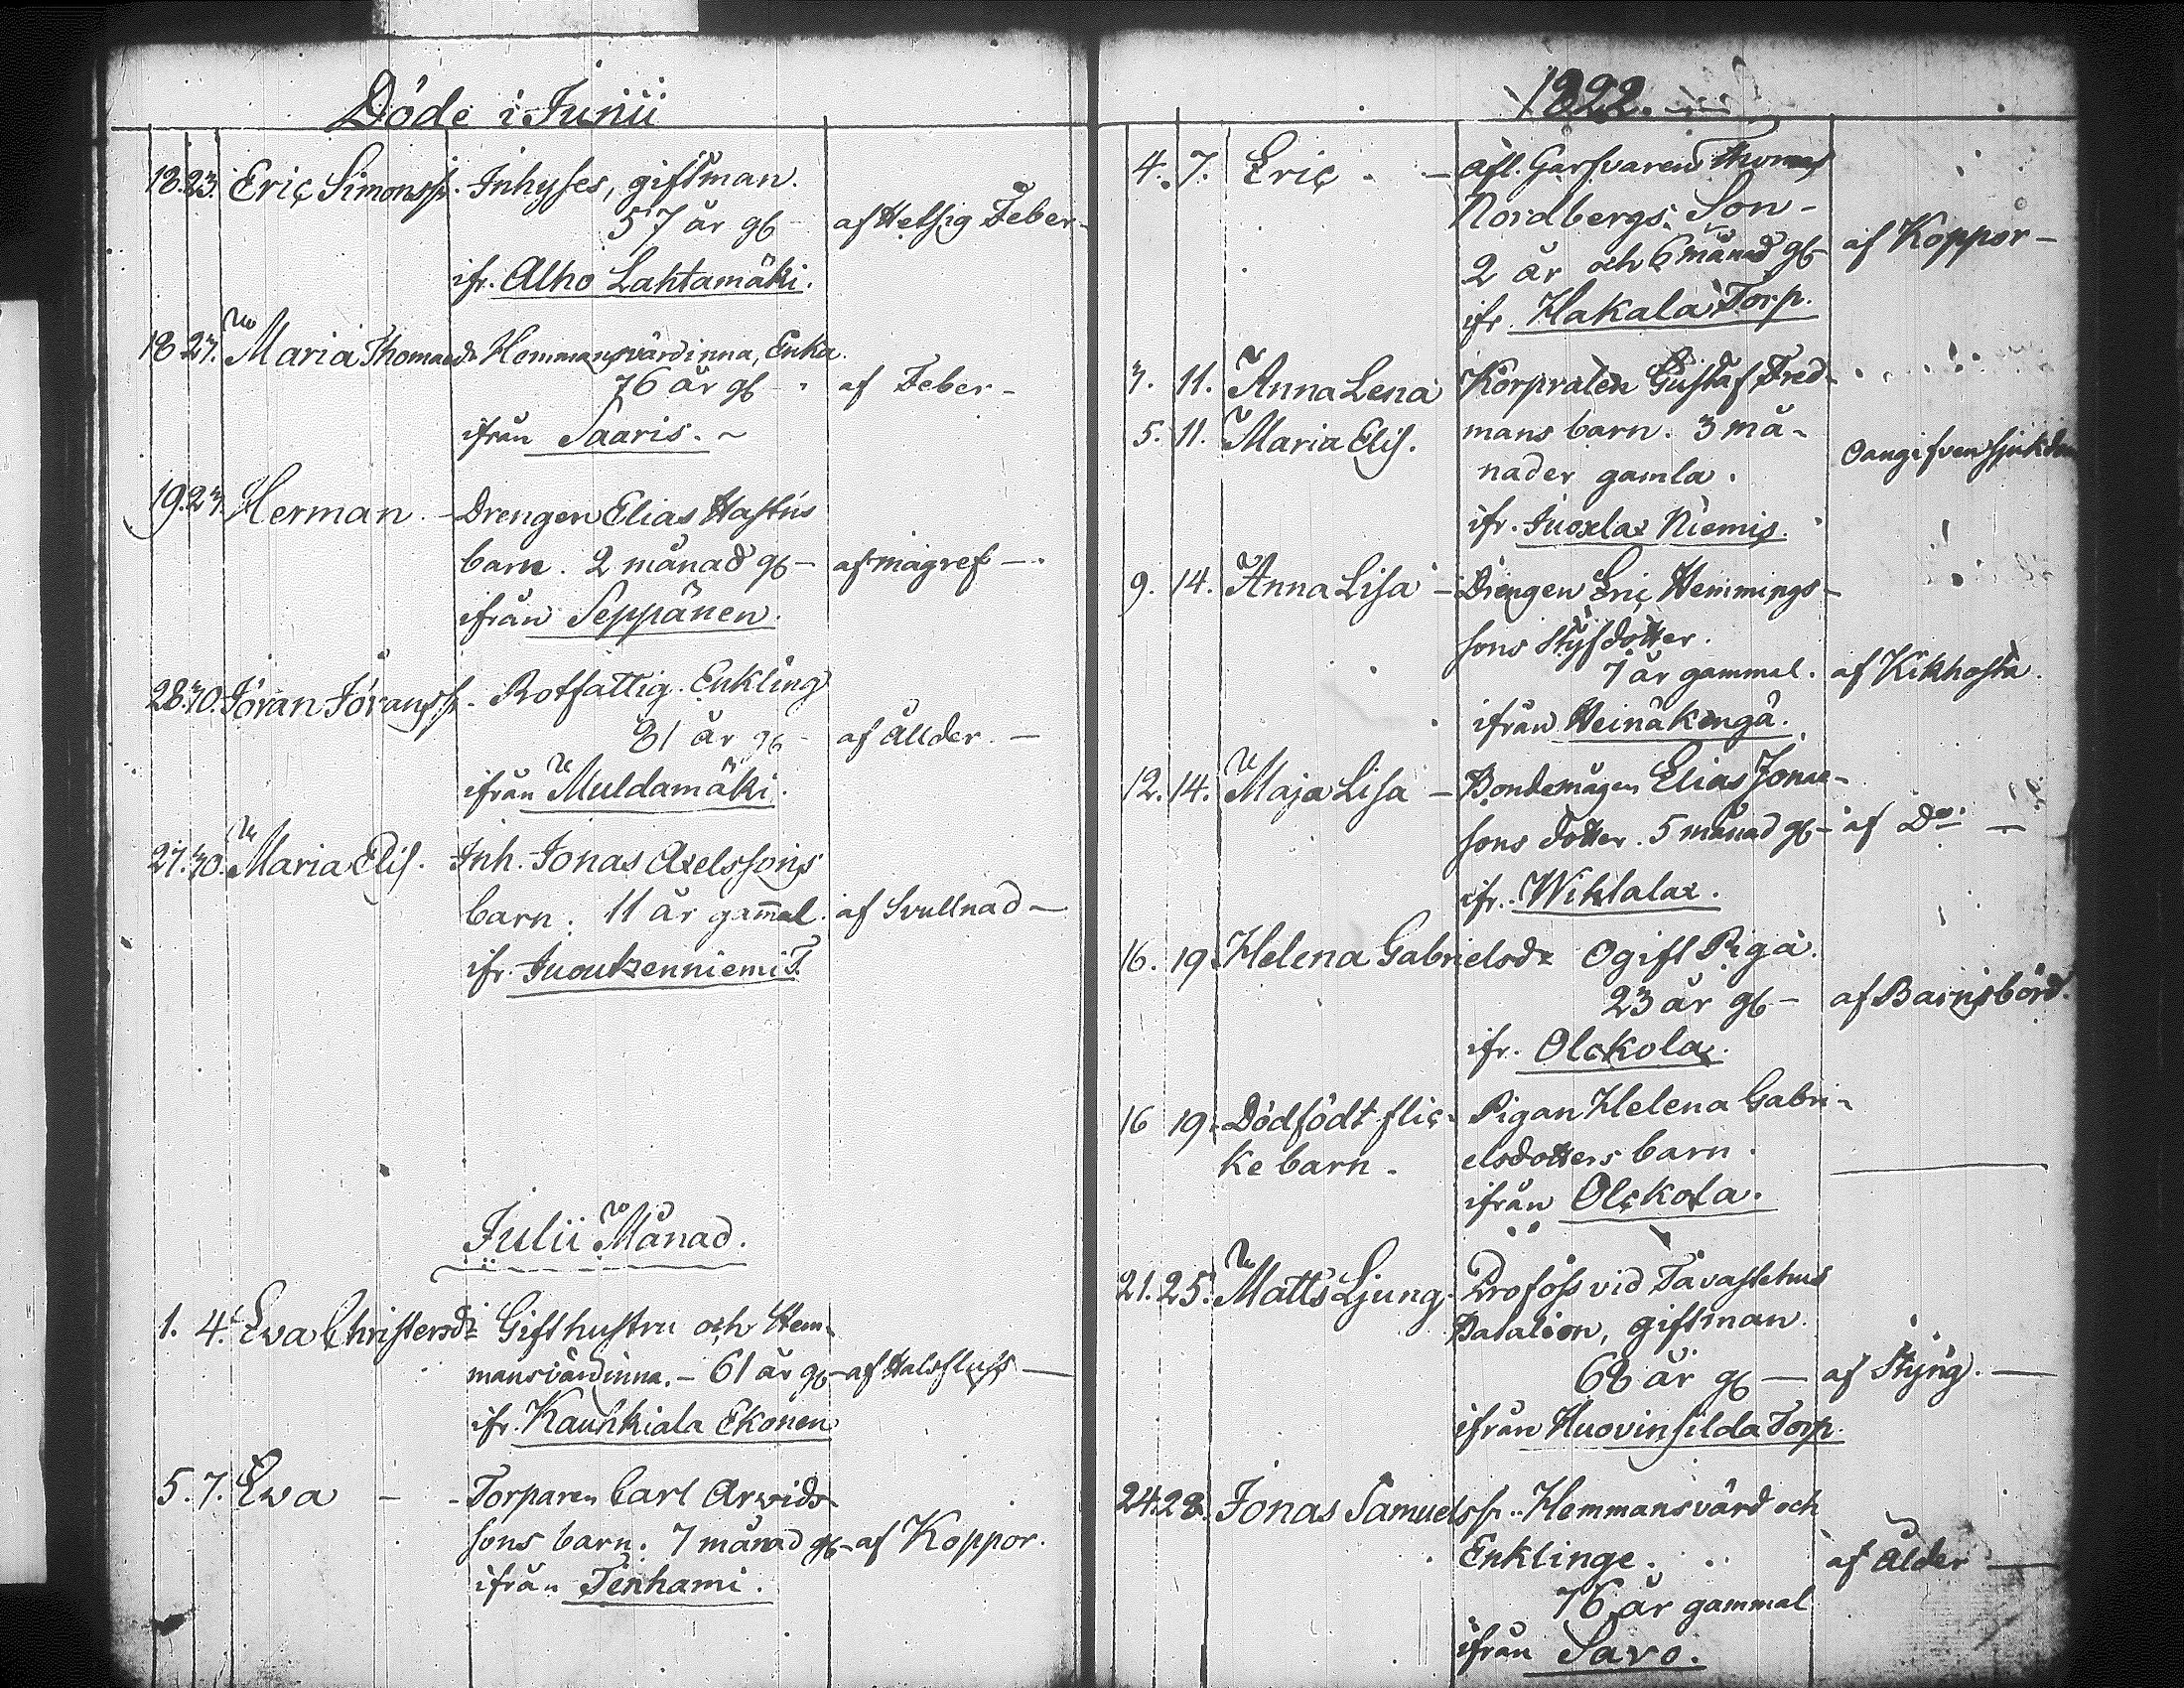 Döde i Junii
18. 23. Eric Simonss. Inhyses, giftman.
57 år gl af Hetsig Feber
ifr. Alho Lahtamäki.
18 27. Maria Thomasdr Hemmansvärdinna, Enka.
76 år gl af Feber
ifrån Saaris.
19. 23. Herman Drengen Elias Hastus
barn. 2 månad gl af magref
ifrån Seppänen.
28. 30. Jöran Jöranss. Rotfattig. Enkling
81 år gl af Ållder.
ifrån Muldamäki.
27. 30. Maria Elis. Inh. Jonas Axelssons
barn. 11 år gammal. af Svullnad
ifr. Juoutzenniemi T.
Julii Månad.
1. 4. Eva Christersdr Gift hustru och Hem-
mansvärdinna. 61 år gl af Halsfluss
ifr. Kauhkiala Ekonen
5. 7. Eva Torparen Carl Arvids
sons barn. 7 månad gl af Koppor.
ifrån Tenhami.
1822.
4. 7. Eric afl. Garfvaren Thomas
Nordbergs Son
2 år och 6 månad gl af Koppor
ifr. Hakala Torp.
3. 11. Anna Lena Korpralen Gustaf Fred-
5. 11. Maria Elis. mans barn. 3 må-
nader gamla. oangifven sjukdom
ifr. Juoxlax Niemis.
9. 14. Anna Lisa Drengen Eric Hemmings-
sons Styfdotter.
7 år gammal. af Kikhosta.
ifrån Heinäkengä.
12. 14. Maja Lisa Bondemågen Elias Jonae-
sons dotter. 5 månad gl af Do
ifr. Wiktalax.
16. 19. Helena Gabrielsdr Ogift Piga.
23 år gl af Barnsbörd.
ifr. Olckola.
16 19. Dödfödt flic- Pigan Helena Gabri-
ke barn. elsdotters barn.
ifrån Olckola.
21. 25. Matts Ljung. Profoss vid Tavastehus
Batalion, giftman.
68 år gl af Styng.
ifrån Huovinsilda Torp.
24. 28. Jonas Samuelss. Hemmansvärd och
Enklinge. af ålder
76 år gammal
ifrån Savo.